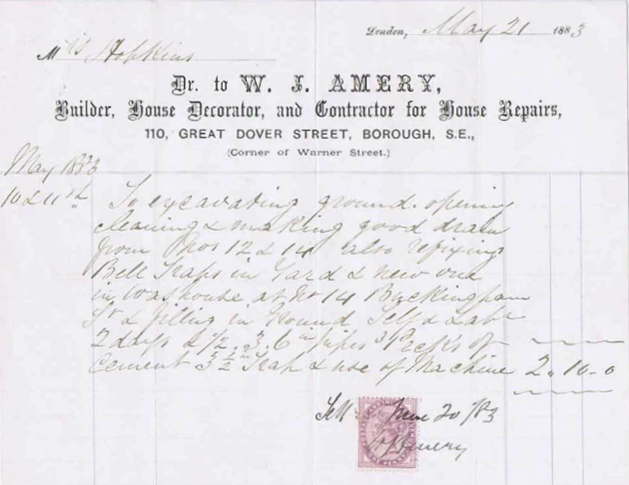 London, May 21 1883
Mrs Hopkins
Dr. to W. J. AMERY,
Builder, House Decorator, and Contractor for House Repairs,
110, GREAT DOVER STREET, BOROUGH, S.E.,
(Corner of Warner Street.)
May 1883
10 & 11th To excavating ground opening
cleaning & making good drain
from Nos 12 & 14 also refixing
Bell Traps in Yard & new one
in Washouse at No 14 Buckingham
St & filling in Ground Self & Labr
2 days & 1/2. 3. 6 in pipes 3 Pecks of
cement 3 1/2 in Trap & use of Machine 2 " 10 - 0
June 20 /83
W J Amery